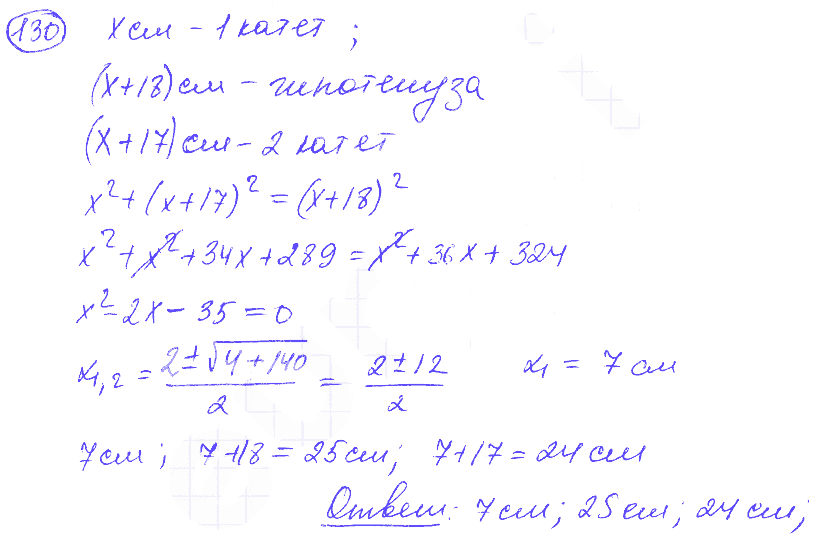 130 x см - 1 катет ;
(x+18) см - гипотенуза
(x+17) см - 2 катет
x² + (x+17)² = (x+18)²
x² + x² + 34x + 289 = x² + 36x + 324
x² - 2x - 35 = 0
x₁,₂ = (2 ± √(4 + 140)) / 2 = (2 ± 12) / 2 x₁ = 7 см
7 см ; 7+18 = 25 см ; 7+17 = 24 см
Ответ: 7 см ; 25 см ; 24 см ;